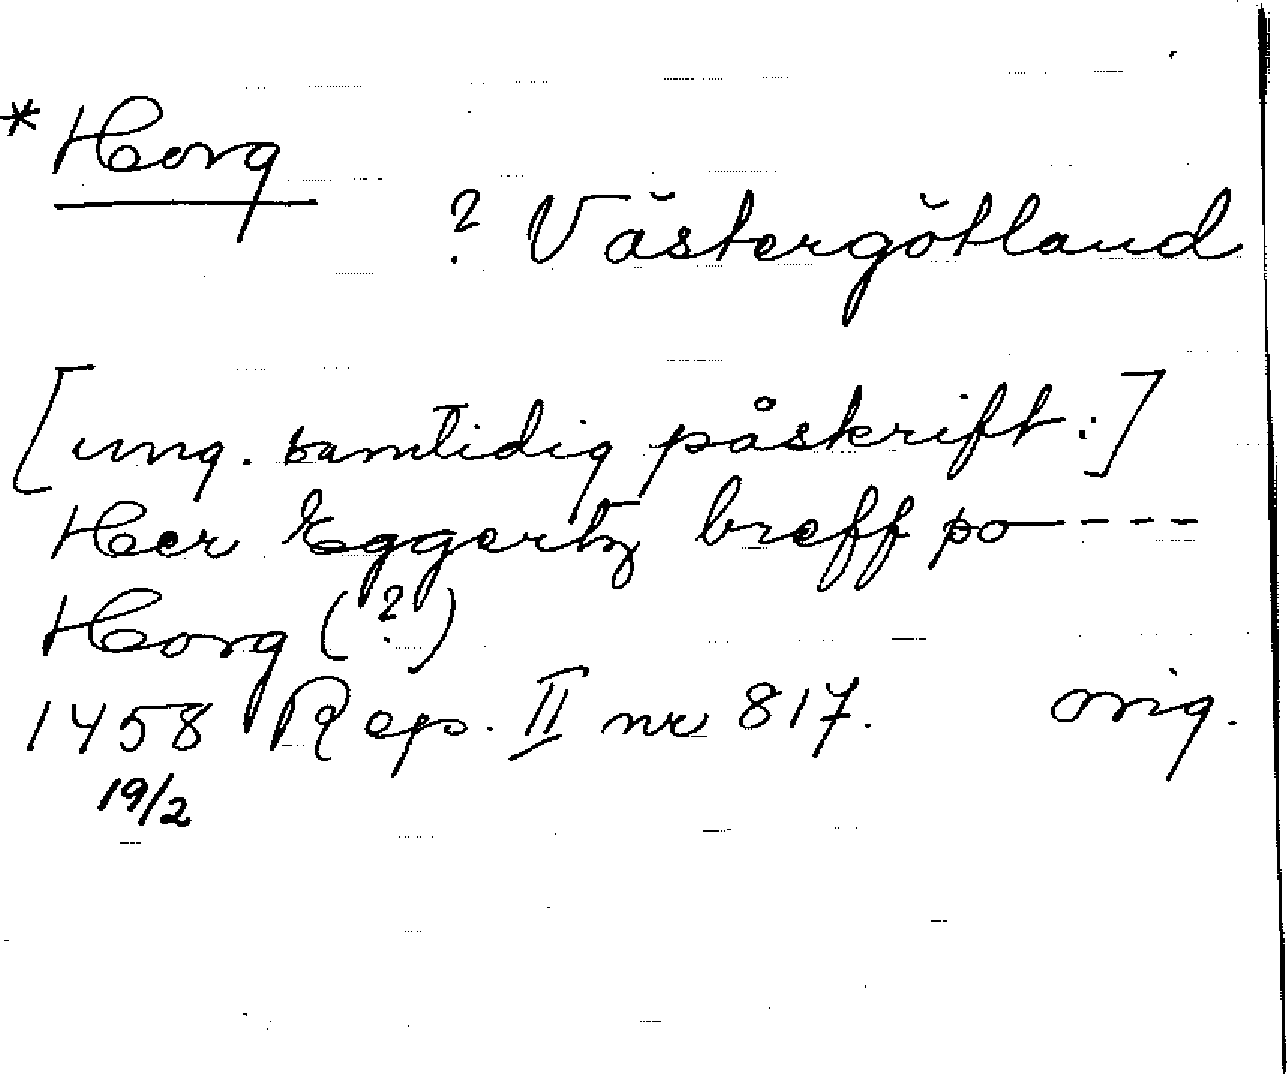 * Horg
? Västergötland
[ung. samtidig påskrift:]
Her Eggertz breff po ----
Horg (?)
1458 Rep. II nr 817. orig.
19/2